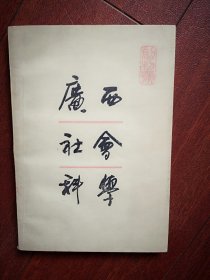 廣西
社會
科學